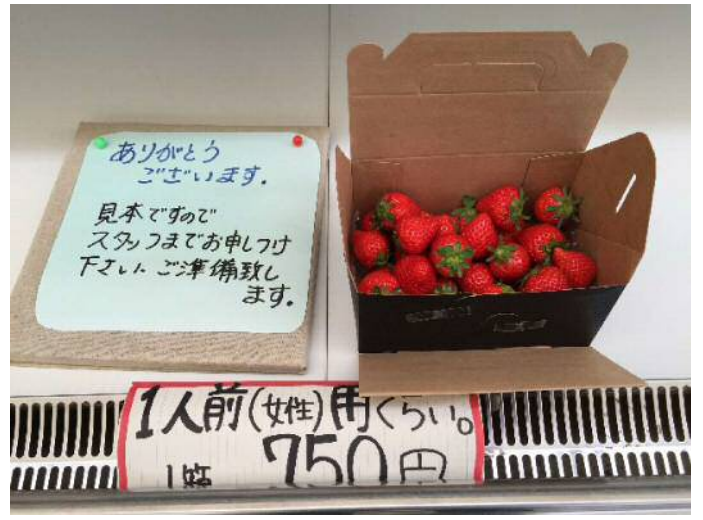 ありがとう
ございます。
見本ですので
スタッフまでお申しつけ
下さい。ご準備致し
ます。
1人前(女性)用くらい。
750円